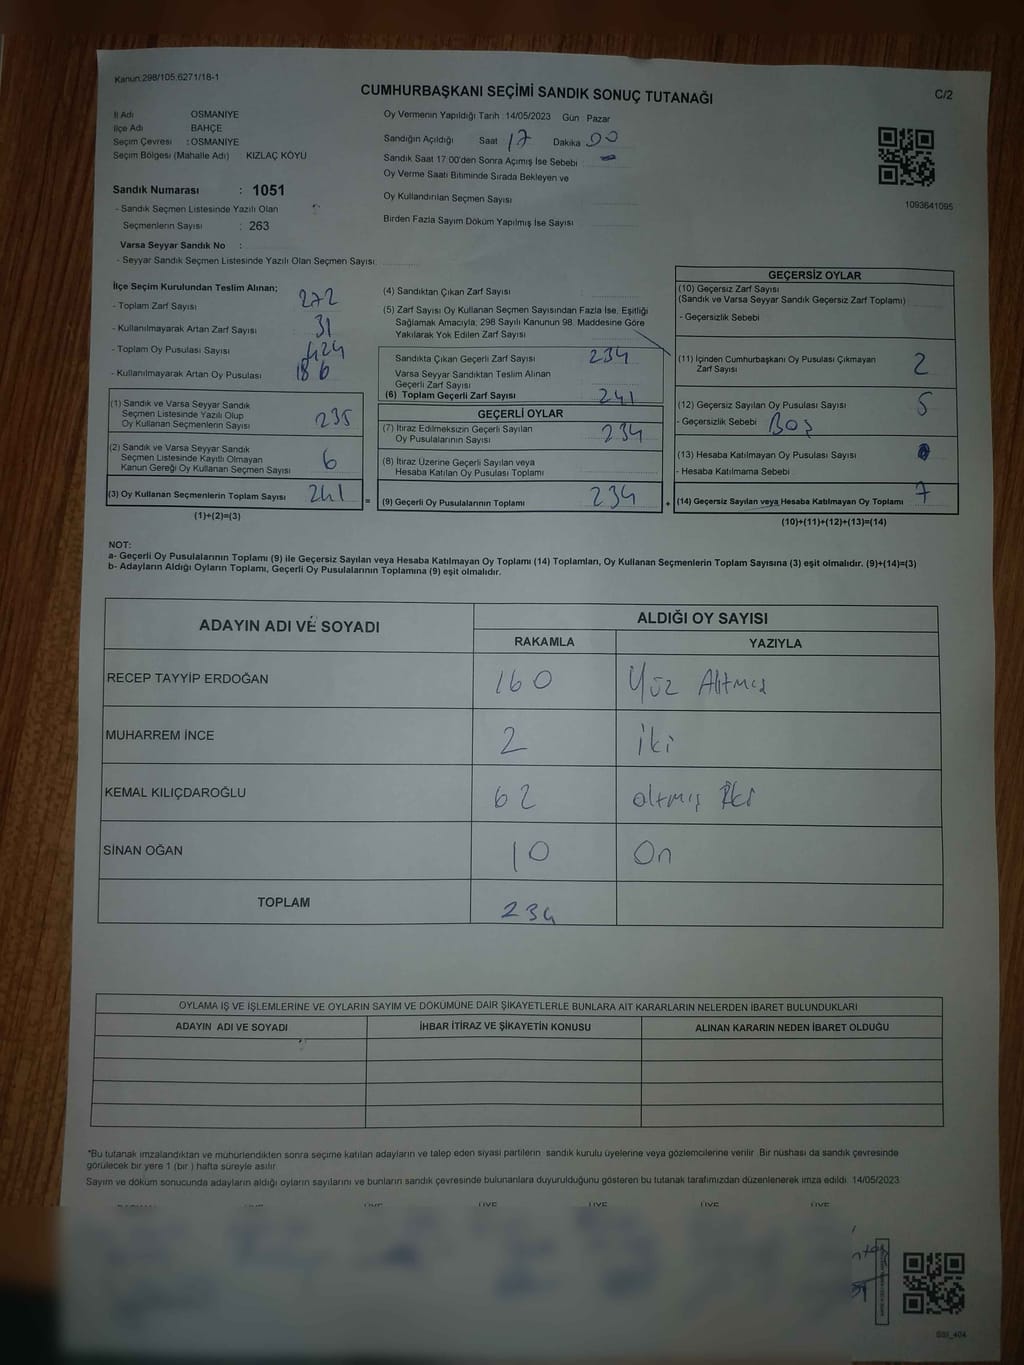 Kanun:298/105,6271/18-1
CUMHURBAŞKANI SEÇİMİ SANDIK SONUÇ TUTANAĞI
C/2
İl Adı OSMANİYE
İlçe Adı BAHÇE
Seçim Çevresi : OSMANİYE
Seçim Bölgesi (Mahalle Adı) KIZLAÇ KÖYÜ
Sandık Numarası : 1051
- Sandık Seçmen Listesinde Yazılı Olan
Seçmenlerin Sayısı : 263
Varsa Seyyar Sandık No :
- Seyyar Sandık Seçmen Listesinde Yazılı Olan Seçmen Sayısı:
Oy Vermenin Yapıldığı Tarih : 14/05/2023 Gün : Pazar
Sandığın Açıldığı Saat 17 Dakika 00
Sandık Saat 17:00'den Sonra Açımış İse Sebebi :
Oy Verme Saati Bitiminde Sırada Bekleyen ve
Oy Kullandırılan Seçmen Sayısı
Birden Fazla Sayım Döküm Yapılmış İse Sayısı
1093641095
İlçe Seçim Kurulundan Teslim Alınan;
- Toplam Zarf Sayısı 272
- Kullanılmayarak Artan Zarf Sayısı 31
- Toplam Oy Pusulası Sayısı 424
- Kullanılmayarak Artan Oy Pusulası 186
(1) Sandık ve Varsa Seyyar Sandık
Seçmen Listesinde Yazılı Olup
Oy Kullanan Seçmenlerin Sayısı 235
(2) Sandık ve Varsa Seyyar Sandık
Seçmen Listesinde Kayıtlı Olmayan
Kanun Gereği Oy Kullanan Seçmen Sayısı 6
(3) Oy Kullanan Seçmenlerin Toplam Sayısı 241
(1)+(2)=(3)
(4) Sandıktan Çıkan Zarf Sayısı
(5) Zarf Sayısı Oy Kullanan Seçmen Sayısından Fazla İse, Eşitliği
Sağlamak Amacıyla, 298 Sayılı Kanunun 98. Maddesine Göre
Yakılarak Yok Edilen Zarf Sayısı
Sandıkta Çıkan Geçerli Zarf Sayısı 234
Varsa Seyyar Sandıktan Teslim Alınan
Geçerli Zarf Sayısı
(6) Toplam Geçerli Zarf Sayısı 241
GEÇERLİ OYLAR
(7) İtiraz Edilmeksizin Geçerli Sayılan
Oy Pusulalarının Sayısı 234
(8) İtiraz Üzerine Geçerli Sayılan veya
Hesaba Katılan Oy Pusulası Toplamı
= (9) Geçerli Oy Pusulalarının Toplamı 234 +
GEÇERSİZ OYLAR
(10) Geçersiz Zarf Sayısı
(Sandık ve Varsa Seyyar Sandık Geçersiz Zarf Toplamı)
- Geçersizlik Sebebi
(11) İçinden Cumhurbaşkanı Oy Pusulası Çıkmayan
Zarf Sayısı 2
(12) Geçersiz Sayılan Oy Pusulası Sayısı 5
- Geçersizlik Sebebi Boş
(13) Hesaba Katılmayan Oy Pusulası Sayısı
- Hesaba Katılmama Sebebi
(14) Geçersiz Sayılan veya Hesaba Katılmayan Oy Toplamı 7
(10)+(11)+(12)+(13)=(14)
NOT:
a- Geçerli Oy Pusulalarının Toplamı (9) ile Geçersiz Sayılan veya Hesaba Katılmayan Oy Toplamı (14) Toplamları, Oy Kullanan Seçmenlerin Toplam Sayısına (3) eşit olmalıdır. (9)+(14)=(3)
b- Adayların Aldığı Oyların Toplamı, Geçerli Oy Pusulalarının Toplamına (9) eşit olmalıdır.
ADAYIN ADI VE SOYADI ALDIĞI OY SAYISI
RAKAMLA YAZIYLA
RECEP TAYYİP ERDOĞAN 160 Yüz Altmış
MUHARREM İNCE 2 İki
KEMAL KILIÇDAROĞLU 62 altmış iki
SİNAN OĞAN 10 On
TOPLAM 234
OYLAMA İŞ VE İŞLEMLERİNE VE OYLARIN SAYIM VE DÖKÜMÜNE DAİR ŞİKAYETLERLE BUNLARA AİT KARARLARIN NELERDEN İBARET BULUNDUKLARI
ADAYIN ADI VE SOYADI İHBAR İTİRAZ VE ŞİKAYETİN KONUSU ALINAN KARARIN NEDEN İBARET OLDUĞU
*Bu tutanak imzalandıktan ve mühürlendikten sonra seçime katılan adayların ve talep eden siyasi partilerin sandık kurulu üyelerine veya gözlemcilerine verilir. Bir nüshası da sandık çevresinde
görülecek bir yere 1 (bir ) hafta süreyle asılır.
Sayım ve döküm sonucunda adayların aldığı oyların sayılarını ve bunların sandık çevresinde bulunanlara duyurulduğunu gösteren bu tutanak tarafımızdan düzenlenerek imza edildi. 14/05/2023